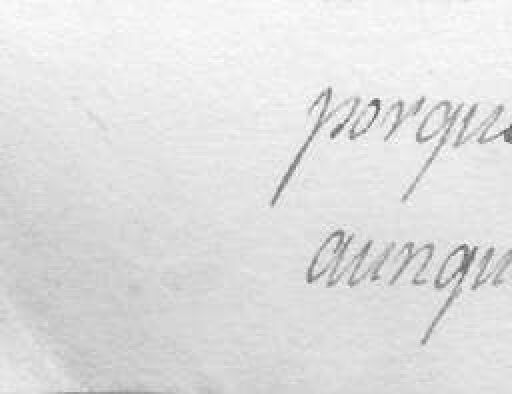 porqu
aunqu